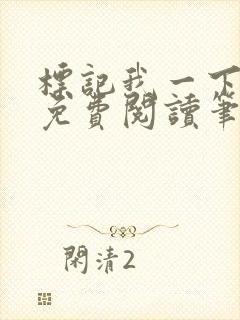 標記我一下
免費閱讀筆
閑清2